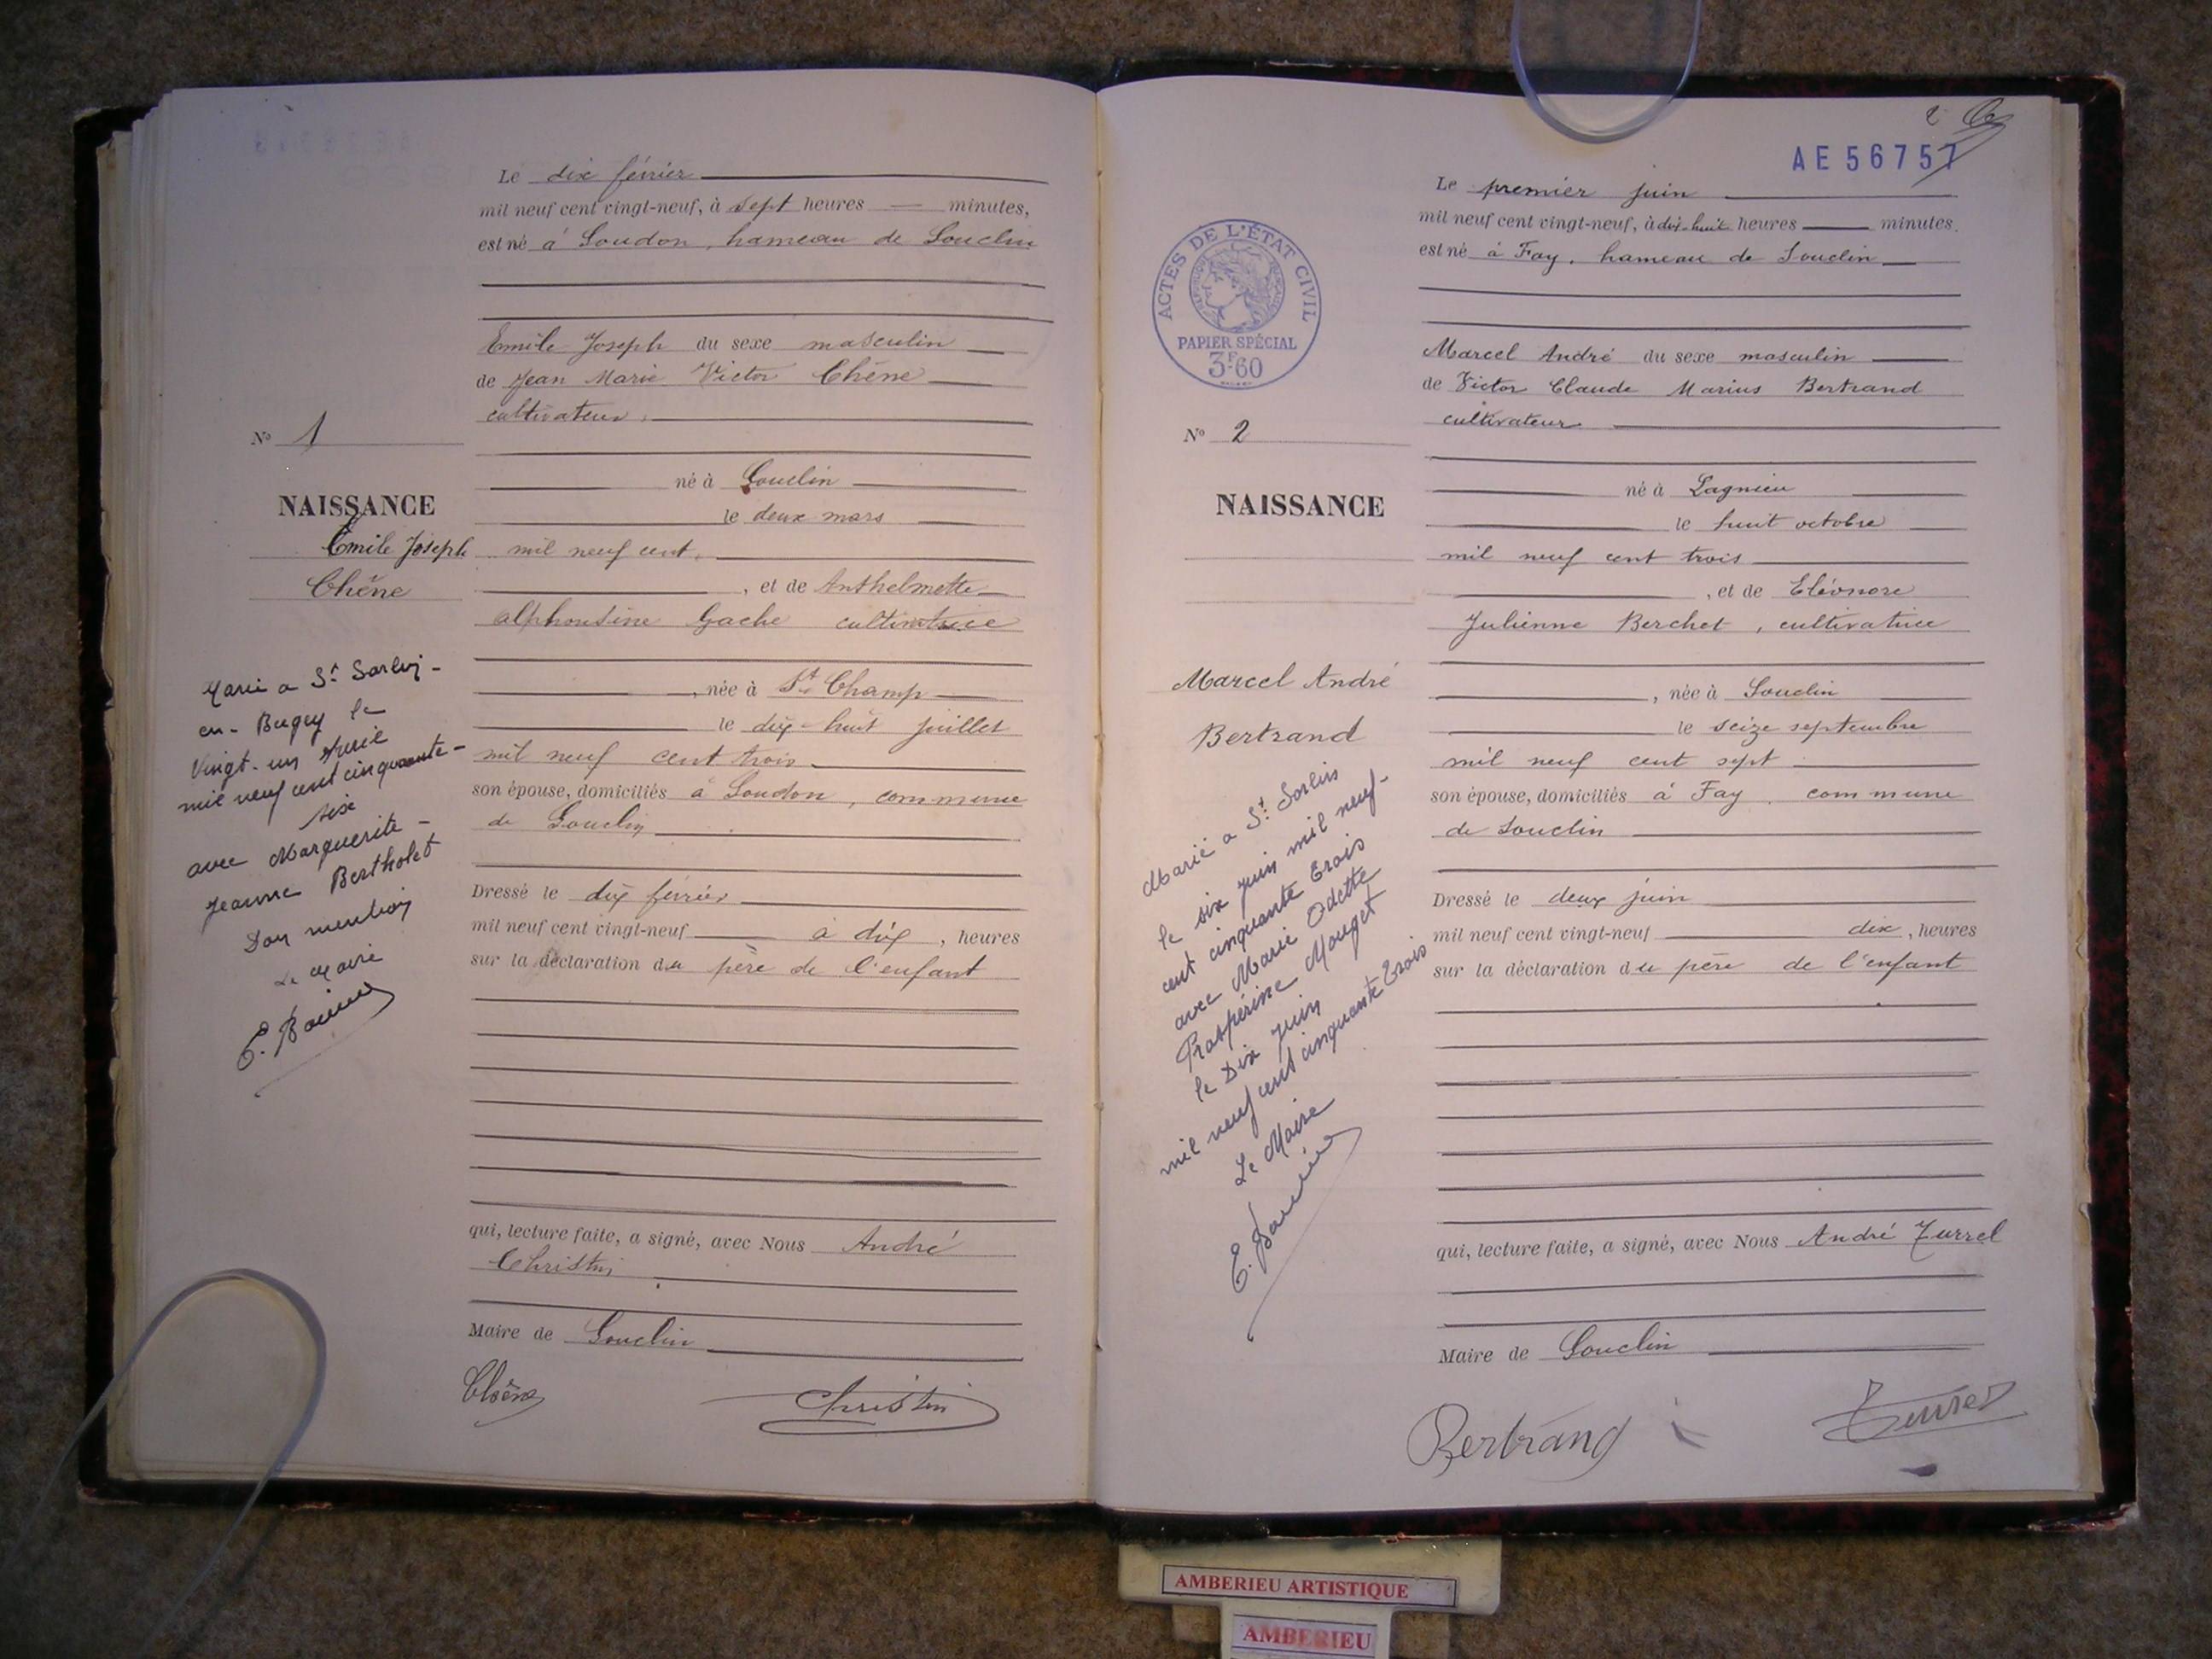 Le dix février
mil neuf cent vingt-neuf, à sept heures — minutes,
est né à Soudon, hameau de Souclin
Emile Joseph du sexe masculin
de Jean Marie Victor Chêne
cultivateur,
né à Souclin
le deux mars
mil neuf cent,
, et de Anthelmette
alphonsine Gache cultivatrice
, née à St Champ
le dix-huit juillet
mil neuf cent trois
son épouse, domiciliés à Soudon, commune
de Souclin
Dressé le dix février
mil neuf cent vingt-neuf à dix, heures
sur la déclaration du père de l'enfant
qui, lecture faite, a signé, avec Nous André
Christin
Maire de Souclin
Chêne
Christin
No 1
NAISSANCE
Emile Joseph
Chêne
Marié a St Sorlin-
en-Bugey le
vingt-un
mil neuf cent cinquante-
six
avec Marguerite-
Jeanne Bertholet
Don mention
Le Maire
2
AE 56757
Le premier juin
mil neuf cent vingt-neuf, à dix-huit heures — minutes.
est né à Fay, hameau de Souclin
Marcel André du sexe masculin
de Victor Claude Marius Bertrand
cultivateur
né à Lagnieu
le huit octobre
mil neuf cent trois
, et de Eléonore
Julienne Berchet, cultivatrice
, née à Souclin
le seize septembre
mil neuf cent sept
son épouse, domiciliés à Fay, commune
de Souclin
Dressé le deux juin
mil neuf cent vingt-neuf dix, heures
sur la déclaration du père de l'enfant
qui, lecture faite, a signé, avec Nous André Turrel
Maire de Souclin
Bertrand
Turrel
ACTES DE L'ÉTAT CIVIL
RÉPUBLIQUE FRANÇAISE
PAPIER SPÉCIAL
3F60
No 2
NAISSANCE
Marcel André
Bertrand
Marié a St Sorlin
le six juin mil neuf-
cent cinquante trois
avec Marie Odette
Prospérine Mouget
le Dix juin
mil neuf cent cinquante trois
Le Maire
AMBERIEU ARTISTIQUE
AMBERIEU